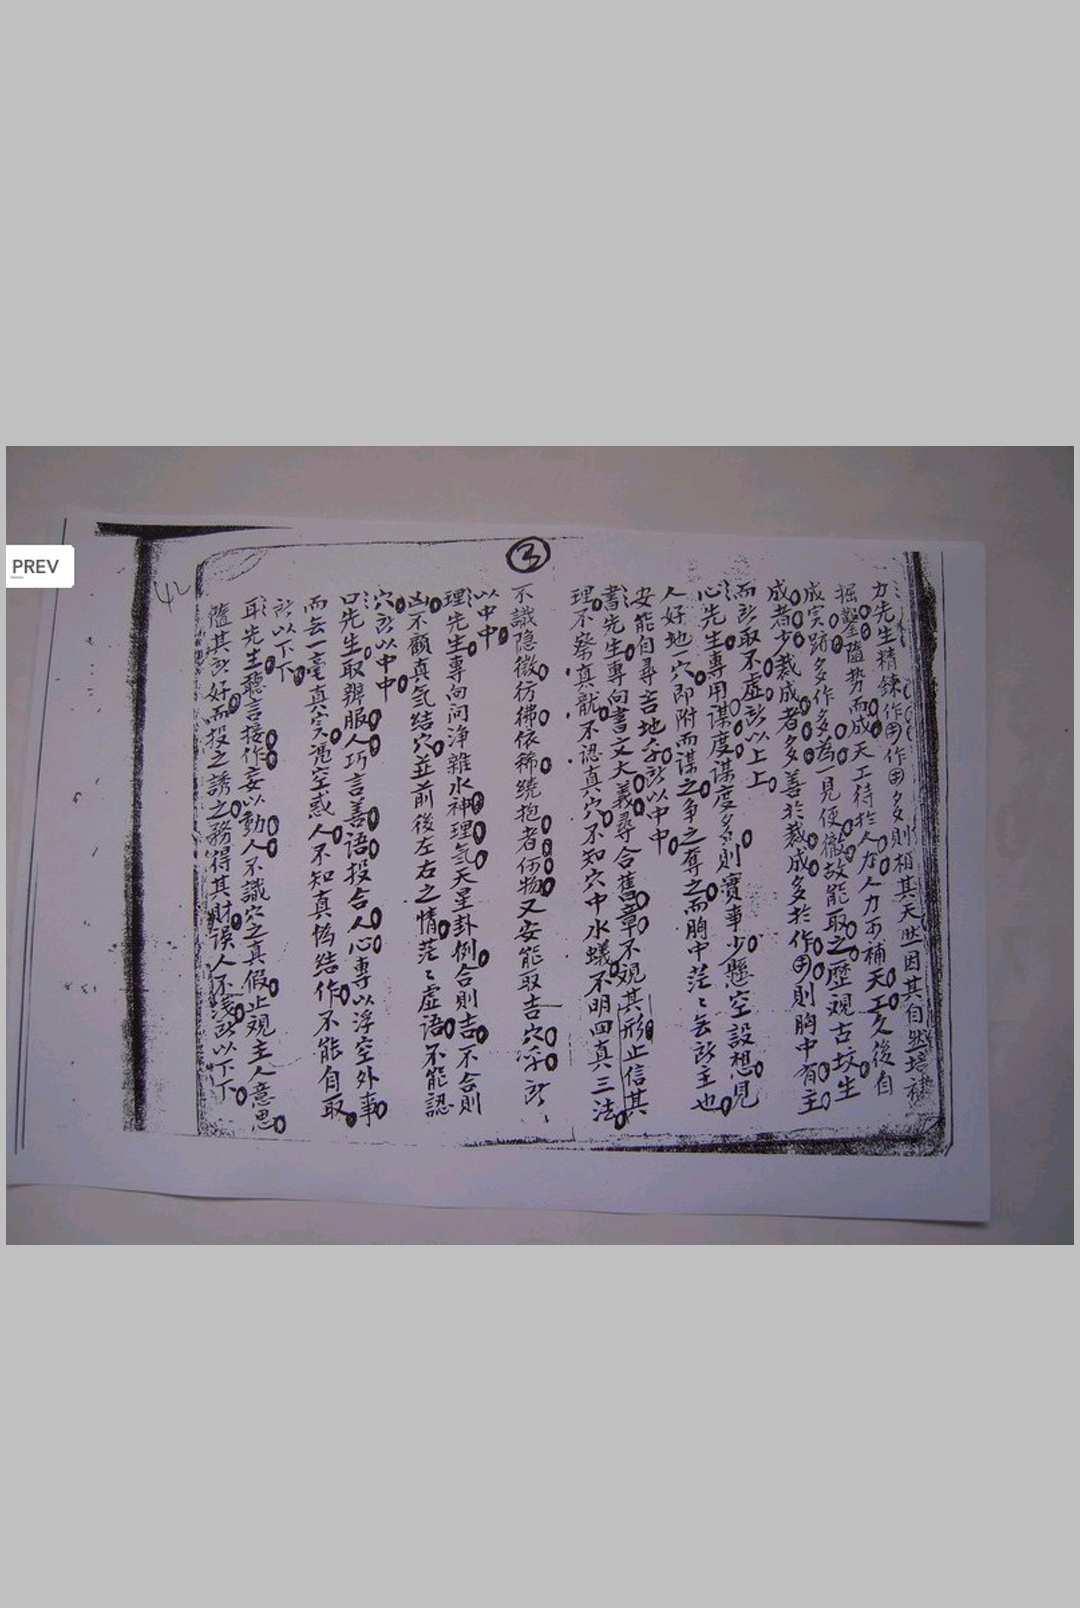 PREV
3
42
力先生精鍊作用作用多則相其天然因其自然培補
掘鑿隨势而成天工待於人力人力可補天工久後自
成実跡多作多為一見便徹故能取之歷观古坟生
成者少裁成者多善於裁成多於作用則胸中有主
而所取不虚所以上上
心先生専用谋度谋度多則實事少懸空設想見
人好地一穴即附而谋之争之奪之而胸中茫〻无所主也
安能自尋吉地乎所以中中
書先生専向書文大義尋合舊章不观其形止信其
理不察真龍不認真穴不知穴中水蟻不明四真三法
不識隐微彷彿依稀繞抱者何物又安能取吉穴乎所
以中中
理先生専向问净雜水神理氣天星卦例合則吉不合則
凶不顧真気結穴並前後左右之情茫〻虚语不能認
穴所以中中
口先生取辨服人巧言善语投合人心専以浮空外事
而无一毫真实凭空惑人不知真偽結作不能自取
所以下下
耳先生聽言接作妄以動人不識穴之真假止观主人意思
隨其所好而投之誘之務得其財误人不浅所以下下